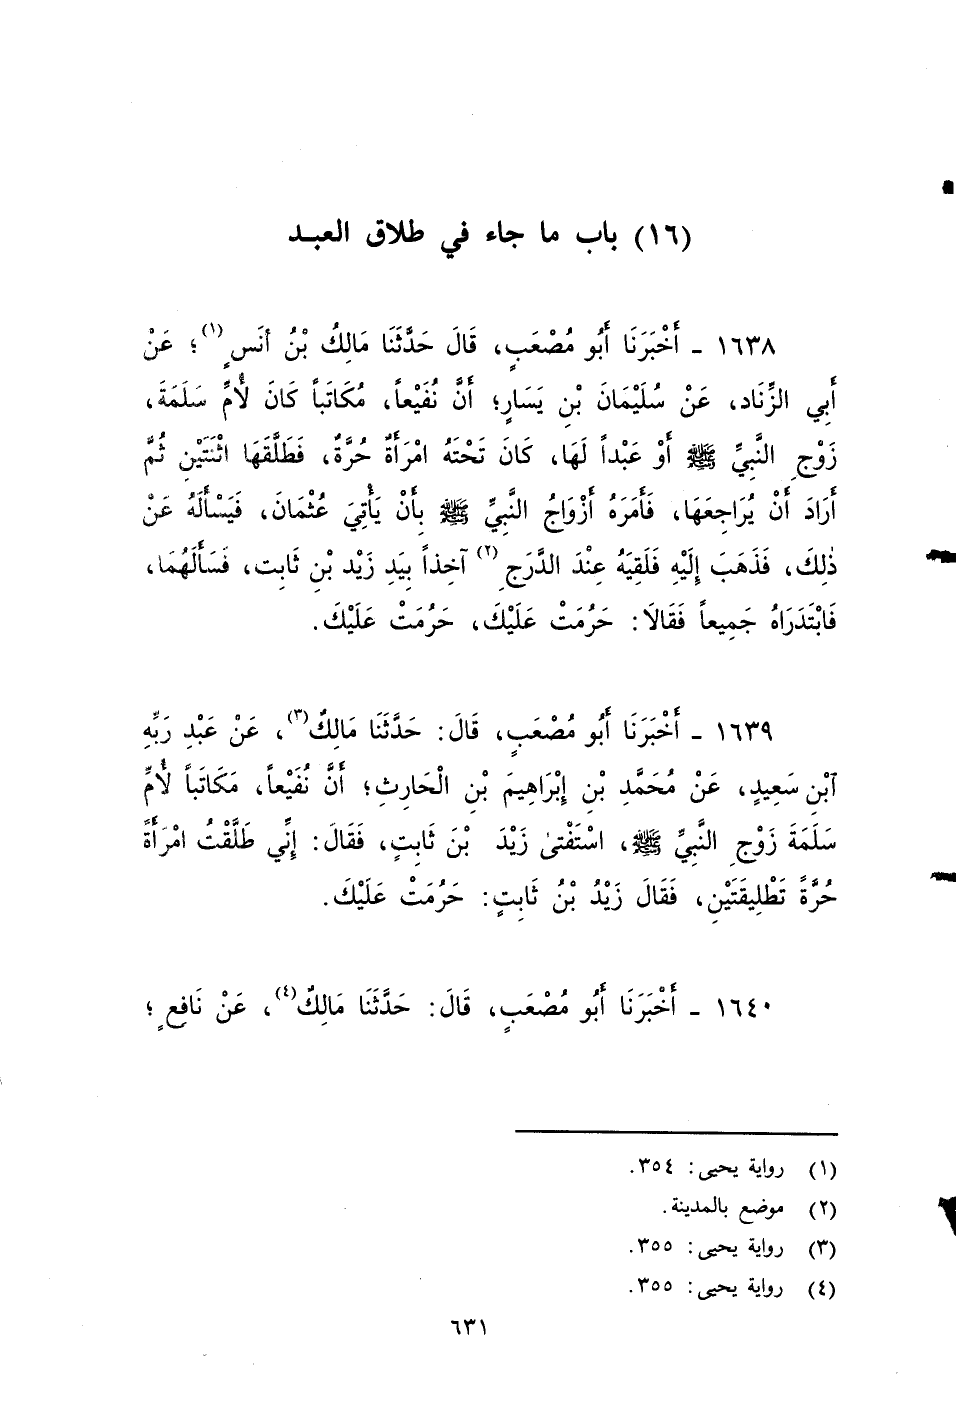 (١٦) باب ما جاء في طلاق العبـد
١٦٣٨ ـ أَخْبَرَنَا أَبُو مُصْعَبٍ، قَالَ حَدَّثَنَا مَالِكُ بْنُ أنَسٍ(١)؛ عَنْ
أَبِي الزِّنَاد، عَنْ سُلَيْمَانَ بْنِ يَسَارٍ؛ أَنَّ نُفَيْعاً، مُكَاتَباً كَانَ لأُمِّ سَلَمَةَ،
زَوْجِ النَّبِيِّ ﷺ أَوْ عَبْداً لَهَا، كَانَ تَحْتَهُ امْرَأَةٌ حُرَّةٌ، فَطَلَّقَهَا اثْنَتَيْنِ ثُمَّ
أَرَادَ أَنْ يُرَاجِعَهَا، فَأَمَرَهُ أَزْوَاجُ النَّبِيِّ ﷺ بِأَنْ يَأْتِيَ عُثْمَانَ، فَيَسْأَلَهُ عَنْ
ذٰلِكَ، فَذَهَبَ إِلَيْهِ فَلَقِيَهُ عِنْدَ الدَّرَجِ(٢) آخِذاً بِيَدِ زَيْدِ بْنِ ثَابِت، فَسَأَلَهُمَا،
فَابْتَدَرَاهُ جَمِيعاً فَقَالَا: حَرُمَتْ عَلَيْكَ، حَرُمَتْ عَلَيْكَ.
١٦٣٩ ـ أَخْبَرَنَا أَبُو مُصْعَبٍ، قَالَ: حَدَّثَنَا مَالِكٌ(٣)، عَنْ عَبْدِ رَبِّهِ
آبْنِ سَعِيدٍ، عَنْ مُحَمَّدِ بْنِ إِبْرَاهِيمَ بْنِ الْحَارِثِ؛ أَنَّ نُفَيْعاً، مَكَاتَباً لأُمِّ
سَلَمَةَ زَوْجِ النَّبِيِّ ﷺ، اسْتَفْتىٰ زَيْدَ بْنَ ثَابِتٍ، فَقَالَ: إِنِّي طَلَّقْتُ امْرَأَةً
حُرَّةً تَطْلِيقَتَيْنِ، فَقَالَ زَيْدُ بْنُ ثَابِتٍ: حَرُمَتْ عَلَيْكَ.
١٦٤٠ ـ أَخْبَرَنَا أَبُو مُصْعَبٍ، قَالَ: حَدَّثَنَا مَالِكٌ(٤)، عَنْ نَافِعٍ؛
(١) رواية يحيى: ٣٥٤.
(٢) موضع بالمدينة.
(٣) رواية يحيى: ٣٥٥.
(٤) رواية يحيى: ٣٥٥.
٦٣١